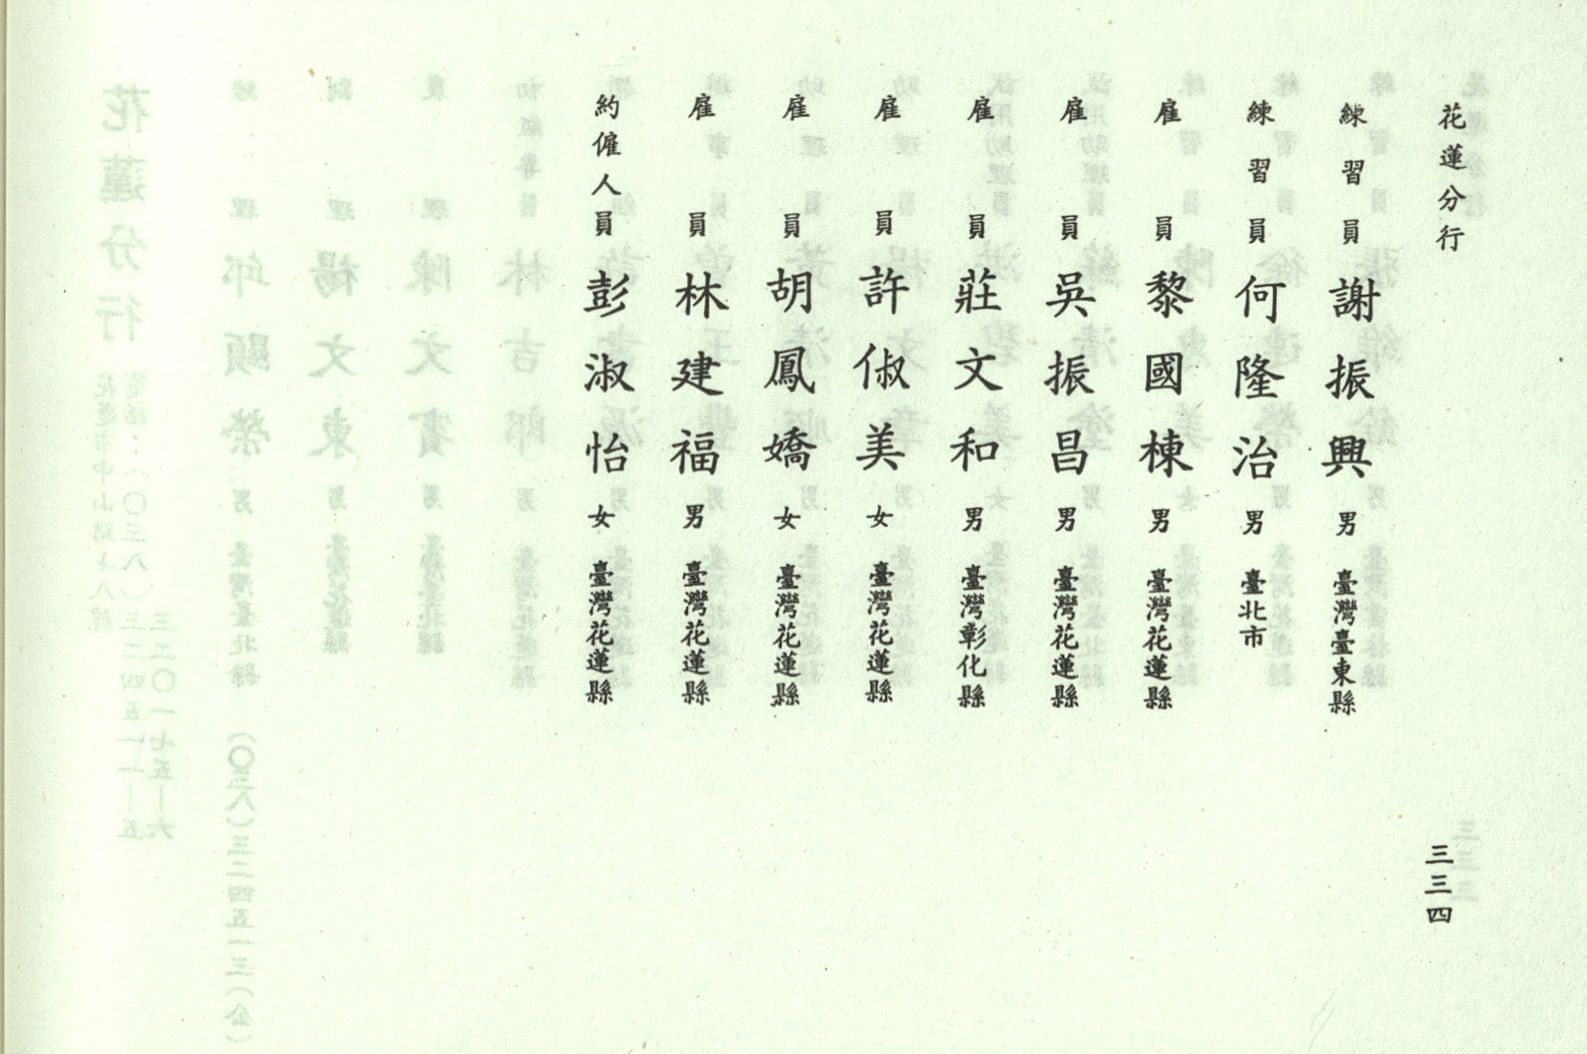 花蓮分行
三三四
練習員 謝振興 男 臺灣臺東縣
練習員 何隆治 男 臺北市
雇員 黎國棟 男 臺灣花蓮縣
雇員 吳振昌 男 臺灣花蓮縣
雇員 莊文和 男 臺灣彰化縣
雇員 許俶美 女 臺灣花蓮縣
雇員 胡鳳嬌 女 臺灣花蓮縣
雇員 林建福 男 臺灣花蓮縣
約僱人員 彭淑怡 女 臺灣花蓮縣